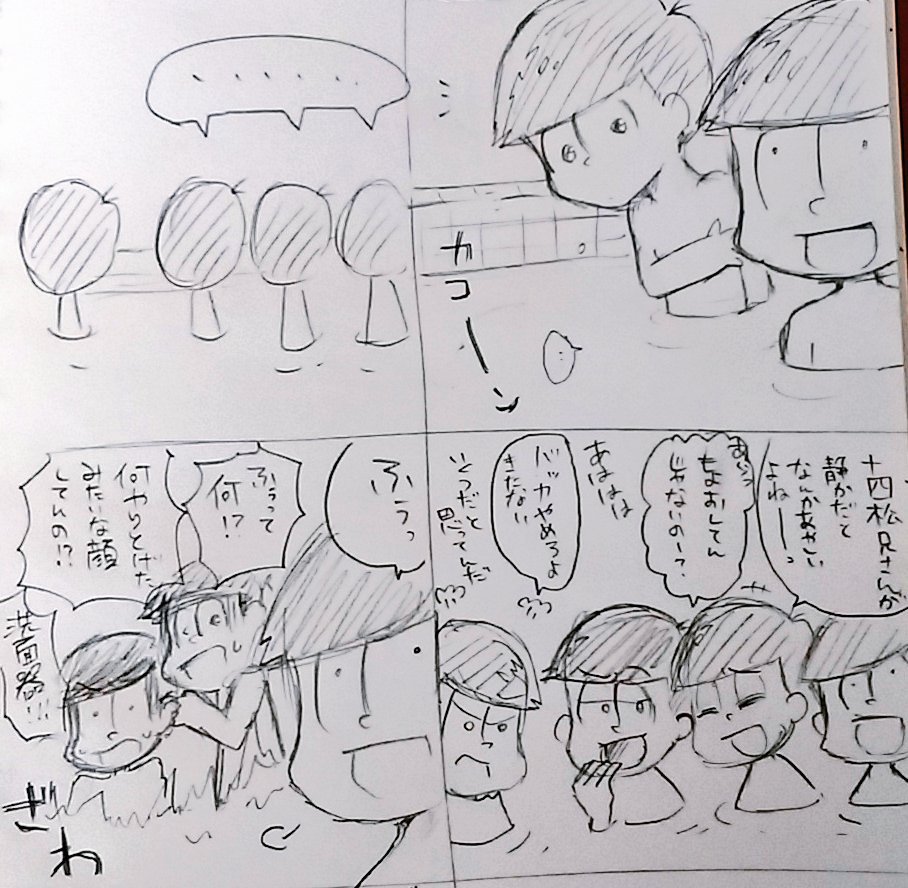 カコーーン
・・・・・・
十四松兄さんが
静かだと
なんかあやしい
よねーーっ
あっ
もよおしてん
じゃないのー?
あははは
バッカやめろよ
きたない
いくつだと
思ってんだ
ふぅっ
ふぅって
何!?
何やりとげた
みたいな顔
してんの!?
洗面器!!!
ざわ